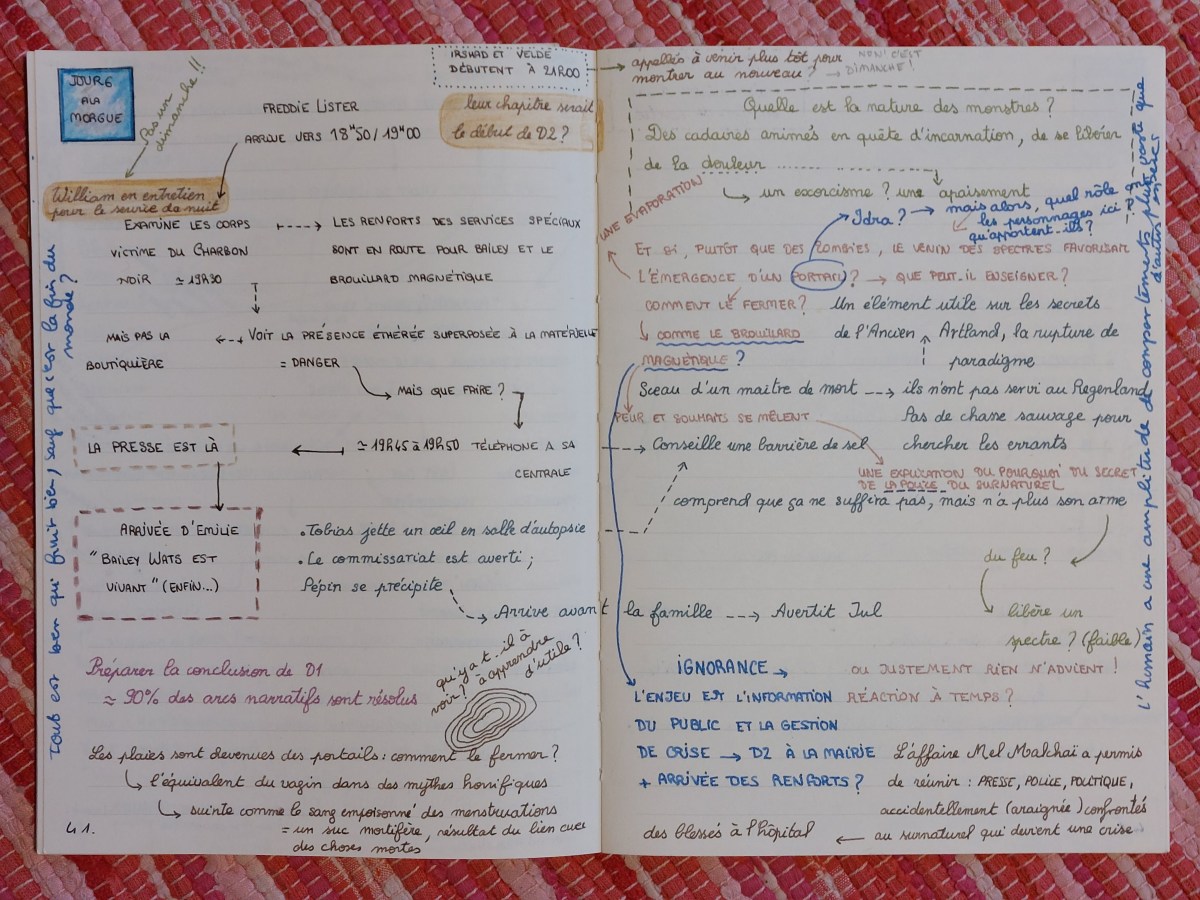 JOUR 6
A LA
MORGUE
Pas un
dimanche !!
FREDDIE LISTER
ARRIVE VERS 18H50/19H00
IRSHAD ET VELDE
DÉBUTENT À 21H00
leur chapitre serait
le début de D2 ?
William en entretien
pour le service de nuit
EXAMINE LES CORPS
VICTIME DU CHARBON
NOIR ≃ 19H30
LES RENFORTS DES SERVICES SPÉCIAUX
SONT EN ROUTE POUR BAILEY ET LE
BROUILLARD MAGNÉTIQUE
MAIS PAS LA
BOUTIQUIÈRE
VOIT LA PRÉSENCE ÉTHÉRÉE SUPERPOSÉE À LA MATÉRIELLE
= DANGER
MAIS QUE FAIRE ?
LA PRESSE EST LÀ
≃ 19H45 à 19H50 TÉLÉPHONE A SA
CENTRALE
ARRIVÉE D'EMILIE
"BAILEY WATS EST
VIVANT" (ENFIN...)
. Tobias jette un œil en salle d'autopsie
. Le commissariat est averti ;
Pépin se précipite
Arrive avant la famille → Avertit Jul
Préparer la conclusion de D1
≃ 90% des arcs narratifs sont résolus
qu'y a-t-il à
voir ? à apprendre
d'utile ?
Les plaies sont devenues des portails : comment le fermer ?
l'équivalent du vagin dans des mythes horrifiques
suinte comme le sang empoisonné des menstruations
= un suc mortifère, résultat du lien avec
des choses mortes
41.
Tout est bien qui finit bien, sauf que c'est la fin du
monde ?
appellés à venir plus tôt pour
montrer au nouveau ? →
NON ! C'EST
DIMANCHE !
Quelle est la nature des monstres ?
Des cadavres animés en quête d'incarnation, de se libérer
de la douleur ..................
un exorcisme ? une apaisement
UNE EVAPORATION
Idra ? → mais alors, quel rôle
les personnages ici ?
qu'apportent-ils ?
ET SI, PLUTÔT QUE DES ZOMBIES, LE VENIN DES SPECTRES FAVORISAIT
L'ÉMERGENCE D'UN PORTAIL ? → QUE PEUT-IL ENSEIGNER ?
COMMENT LE FERMER ?
COMME LE BROUILLARD
MAGNÉTIQUE ?
Un élément utile sur les secrets
de l'Ancien Artland, la rupture de
paradigme
Sceau d'un maitre de mort → ils n'ont pas servi au Regenland
PEUR ET SOUHAITS SE MÊLENT
Pas de chasse sauvage pour
chercher les errants
Conseille une barrière de sel
UNE EXPLICATION DU POURQUOI DU SECRET
DE LA POLICE DU SURNATUREL
comprend que ça ne suffira pas, mais n'a plus son arme
du feu ?
libère un
spectre ? (faible)
IGNORANCE →
L'ENJEU EST L'INFORMATION
DU PUBLIC ET LA GESTION
DE CRISE → D2 À LA MAIRIE
+ ARRIVÉE DES RENFORTS ?
OU JUSTEMENT RIEN N'ADVIENT !
RÉACTION À TEMPS ?
L'affaire Mel Malchaï a permis
de réunir : PRESSE, POLICE, POLITIQUE,
accidentellement (araignée) confrontés
au surnaturel qui durent une crise
des blessés à l'hôpital
L'humain a une amplitude de comportements plus vaste que
d'autres espèces